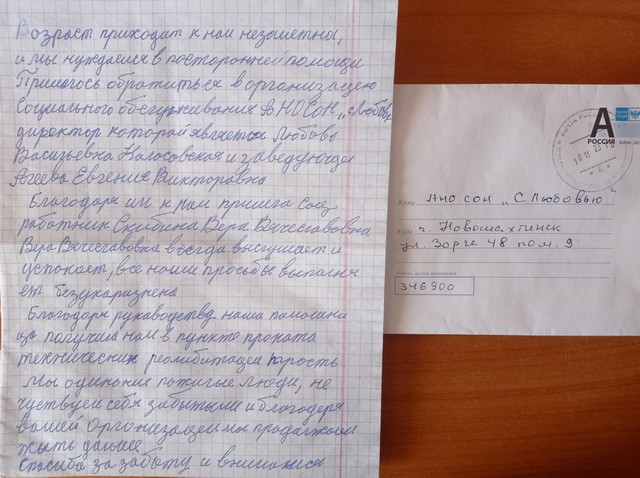 Возраст приходит к нам незаметна,
и мы нуждаемся в посторонней помощи
Пришлось обратиться в организацею
Социального обслуживания АНОСОН „с Любовью
директор которой является Любовь
Васильевна Колосовская и заведующая
Агеева Евгения Викторовна
Благодаря им к нам пришла соц
работник Скибина Вера Вячеславовна
Вера Вячеславовна всегда выслушает и
успокоет, все наши просьбы выполня
ет безукаризнена
Благодаря руководству наша помошни
ца получила нам в пункте проката
технических реолибитацеи трость
Мы одинокие пожилые люди, не
чуствуем себя забытыми и благодаря
вашей Организацеи мы продолжаем
жыть дальше
Спасиба за заботу и внимания
А
РОССИЯ
Кому АНО СОН "С ЛЮБОВЬЮ"
Куда г. Новошахтинск
ул. Зорге 48 пом. 9
346900